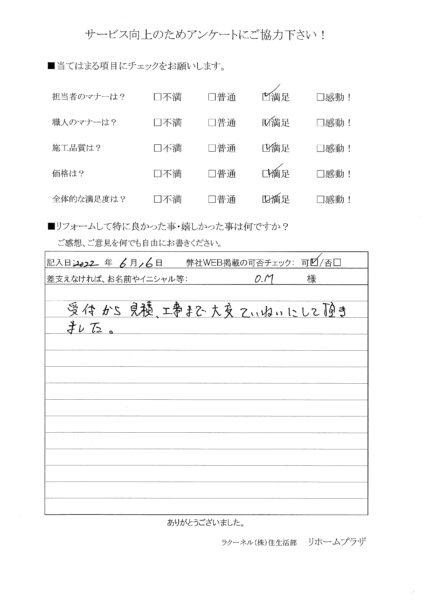 サービス向上のためアンケートにご協力下さい！
■当てはまる項目にチェックをお願いします。
担当者のマナーは？ □不満 □普通 ☑満足 □感動！
職人のマナーは？ □不満 □普通 ☑満足 □感動！
施工品質は？ □不満 □普通 ☑満足 □感動！
価格は？ □不満 □普通 ☑満足 □感動！
全体的な満足度は？ □不満 □普通 ☑満足 □感動！
■リフォームして特に良かった事・嬉しかった事は何ですか？
ご感想、ご意見を何でも自由にお書きください。
記入日 2022 年 6 月 16 日 弊社WEB掲載の可否チェック: 可☑/否□
差支えなければ、お名前やイニシャル等: O.M 様
受付から見積、工事まで大変ていねいにして頂き
ました。
ありがとうございました。
ラクーネル(株)住生活部 リホームプラザ